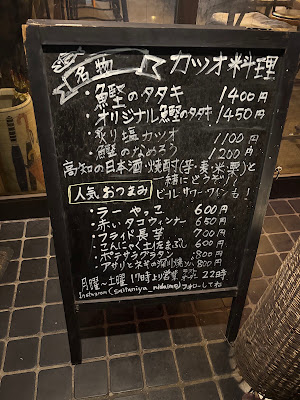 名物 カツオ料理
・鰹のタタキ 1400円
・オリジナル鰹のタタキ 1450円
・炙り塩カツオ 1100円
・鰹のなめろう 1200円
高知の日本酒・焼酎(芋・麦・米・栗)と
緒にどうぞ!
ビール・サワー・ワインも!
人気おつまみ
・ラーやっこ 600円
・赤いタコウィンナー 650円
・フライド長芋 700円
・こんにゃく土佐まぶし 600円
・ポテサラグラタン 800円
・アサリとネギの深川焼 800円
月曜〜土曜 17時より営業 ラストオーダー 22時
Instagram フォローしてね